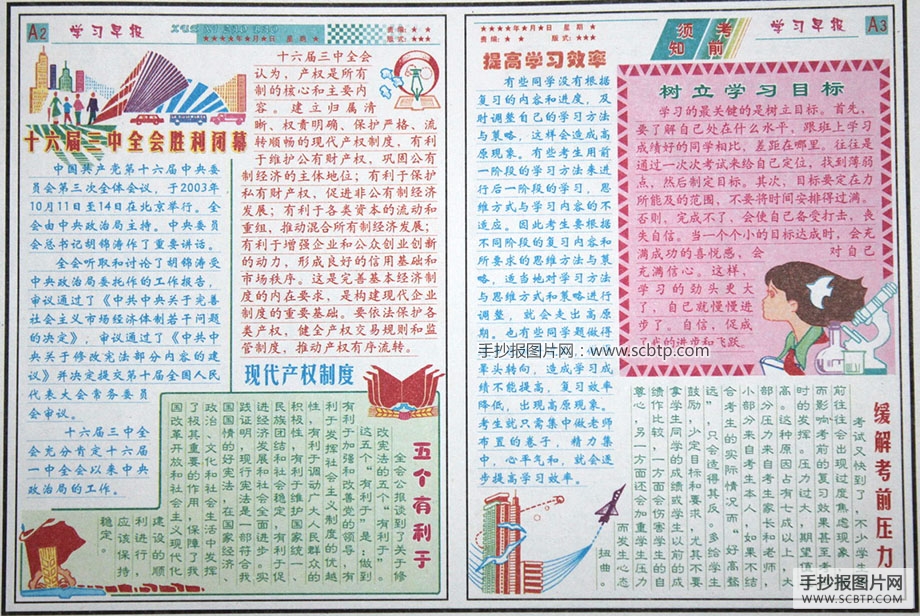 A2
学习早报
★★★★年★月★日 星期★
责编:★ ★
版式:★★★
十六届三中全会胜利闭幕
中国共产党第十六届中央委
员会第三次全体会议,于2003年
10月11日至14日在北京举行。全
会由中央政治局主持。中央委员
会总书记胡锦涛作了重要讲话。
全会听取和讨论了胡锦涛受
中央政治局委托作的工作报告,
审议通过了《中共中央关于完善
社会主义市场经济体制若干问题
的决定》,审议通过了《中共中
央关于修改宪法部分内容的建
议》并决定提交第十届全国人民
代表大会常务委员
会审议。
十六届三中全
会充分肯定十六届
一中全会以来中央
政治局的工作。
十六届三中全会
认为,产权是所有
制的核心和主要内
容。建立归属清
晰、权责明确、保护严格、流
转顺畅的现代产权制度,有利
于维护公有财产权,巩固公有
制经济的主体地位;有利于保护
私有财产权,促进非公有制经济
发展;有利于各类资本的流动和
重组,推动混合所有制经济发展;
有利于增强企业和公众创业创新
的动力,形成良好的信用基础和
市场秩序。这是完善基本经济制
度的内在要求,是构建现代企业
制度的重要基础。要依法保护各
类产权,健全产权交易规则和监
管制度,推动产权有序流转。
现代产权制度
五个有利于
全会公报谈到了关于修
改宪法的“五个有利于”。
这五个“有利于”是:做到
有利于加强和改善党的领导,有
利于发挥社会主义制度的优越
性,有利于调动广大人民群众的
积极性,有利于维护国家统一、
民族团结和社会稳定,有利于促
进经济发展和社会全面进步。实
践证明,现行宪法是一部符合我
国国情的好宪法,在国家经济、
政治、文化和社会生活中发挥
着重要的作用,保障了我
国改革开放和社会主义现代化
建设的顺
利进行,
应该保持
稳定。
★★★★年★月★日 星期★
责编:★ ★ 版式:★★★
考前须知
学习早报
A3
提高学习效率
有些同学没有根据
复习的内容和进度,及
时调整自己的学习方法
与策略,这样会造成高
原现象。有些考生用前
一阶段的学习方法来进
行后一阶段的学习,思
维方式与学习内容的不
适应。因此考生要根据
不同阶段的复习内容和
所要求的思维方法与策
略,适当地对学习方法
与思维方式和策略进行
调整,就会走出高原
期。也有些同学题做得
晕头转向,造成学习成
绩不能提高,复习效率
降低,出现高原现象。
考生就只需集中做老师
布置的卷子,精力集
中,心平气和,就会逐
步提高学习效率。
树立学习目标
学习的最关键的是树立目标。首先,
要了解自己处在什么水平,跟班上学习
成绩好的同学相比,差距在哪里,往往是
通过一次次考试来给自己定位,找到薄弱
点,然后制定目标。其次,目标要定在力
所能及的范围,不要将时间安排得过满。
否则,完成不了,会使自己备受打击,丧
失自信。当一个个小的目标达成时,会充
满成功的喜悦感,会对自己
充满信心。这样,
学习的劲头更大
了,自己就慢慢进
步了。自信,促成
了我的进步和飞跃。
手抄报图片网:www.scbtp.com
缓解考前压力
考试又快到了,不少学生
前往往会出现过度焦虑现象,
而影响考前的复习效果甚至考
时的发挥。压力过大,期望值
高。这种原因占有七成以上,大
部分压力来自考生家长和老师,
小部分来自考生本人,如果不结
合考生的实际情况而“好高骛
远”,只会造得其反。多给学生
鼓励,少定目标和要求,尤其不要
拿学生同学的成绩或学生以前的成
绩作比较,一方面会伤害学生的自
尊心,另一方面还会加重学生压力
而发生心态
扭曲。
手抄报图片网
WWW.SCBTP.COM